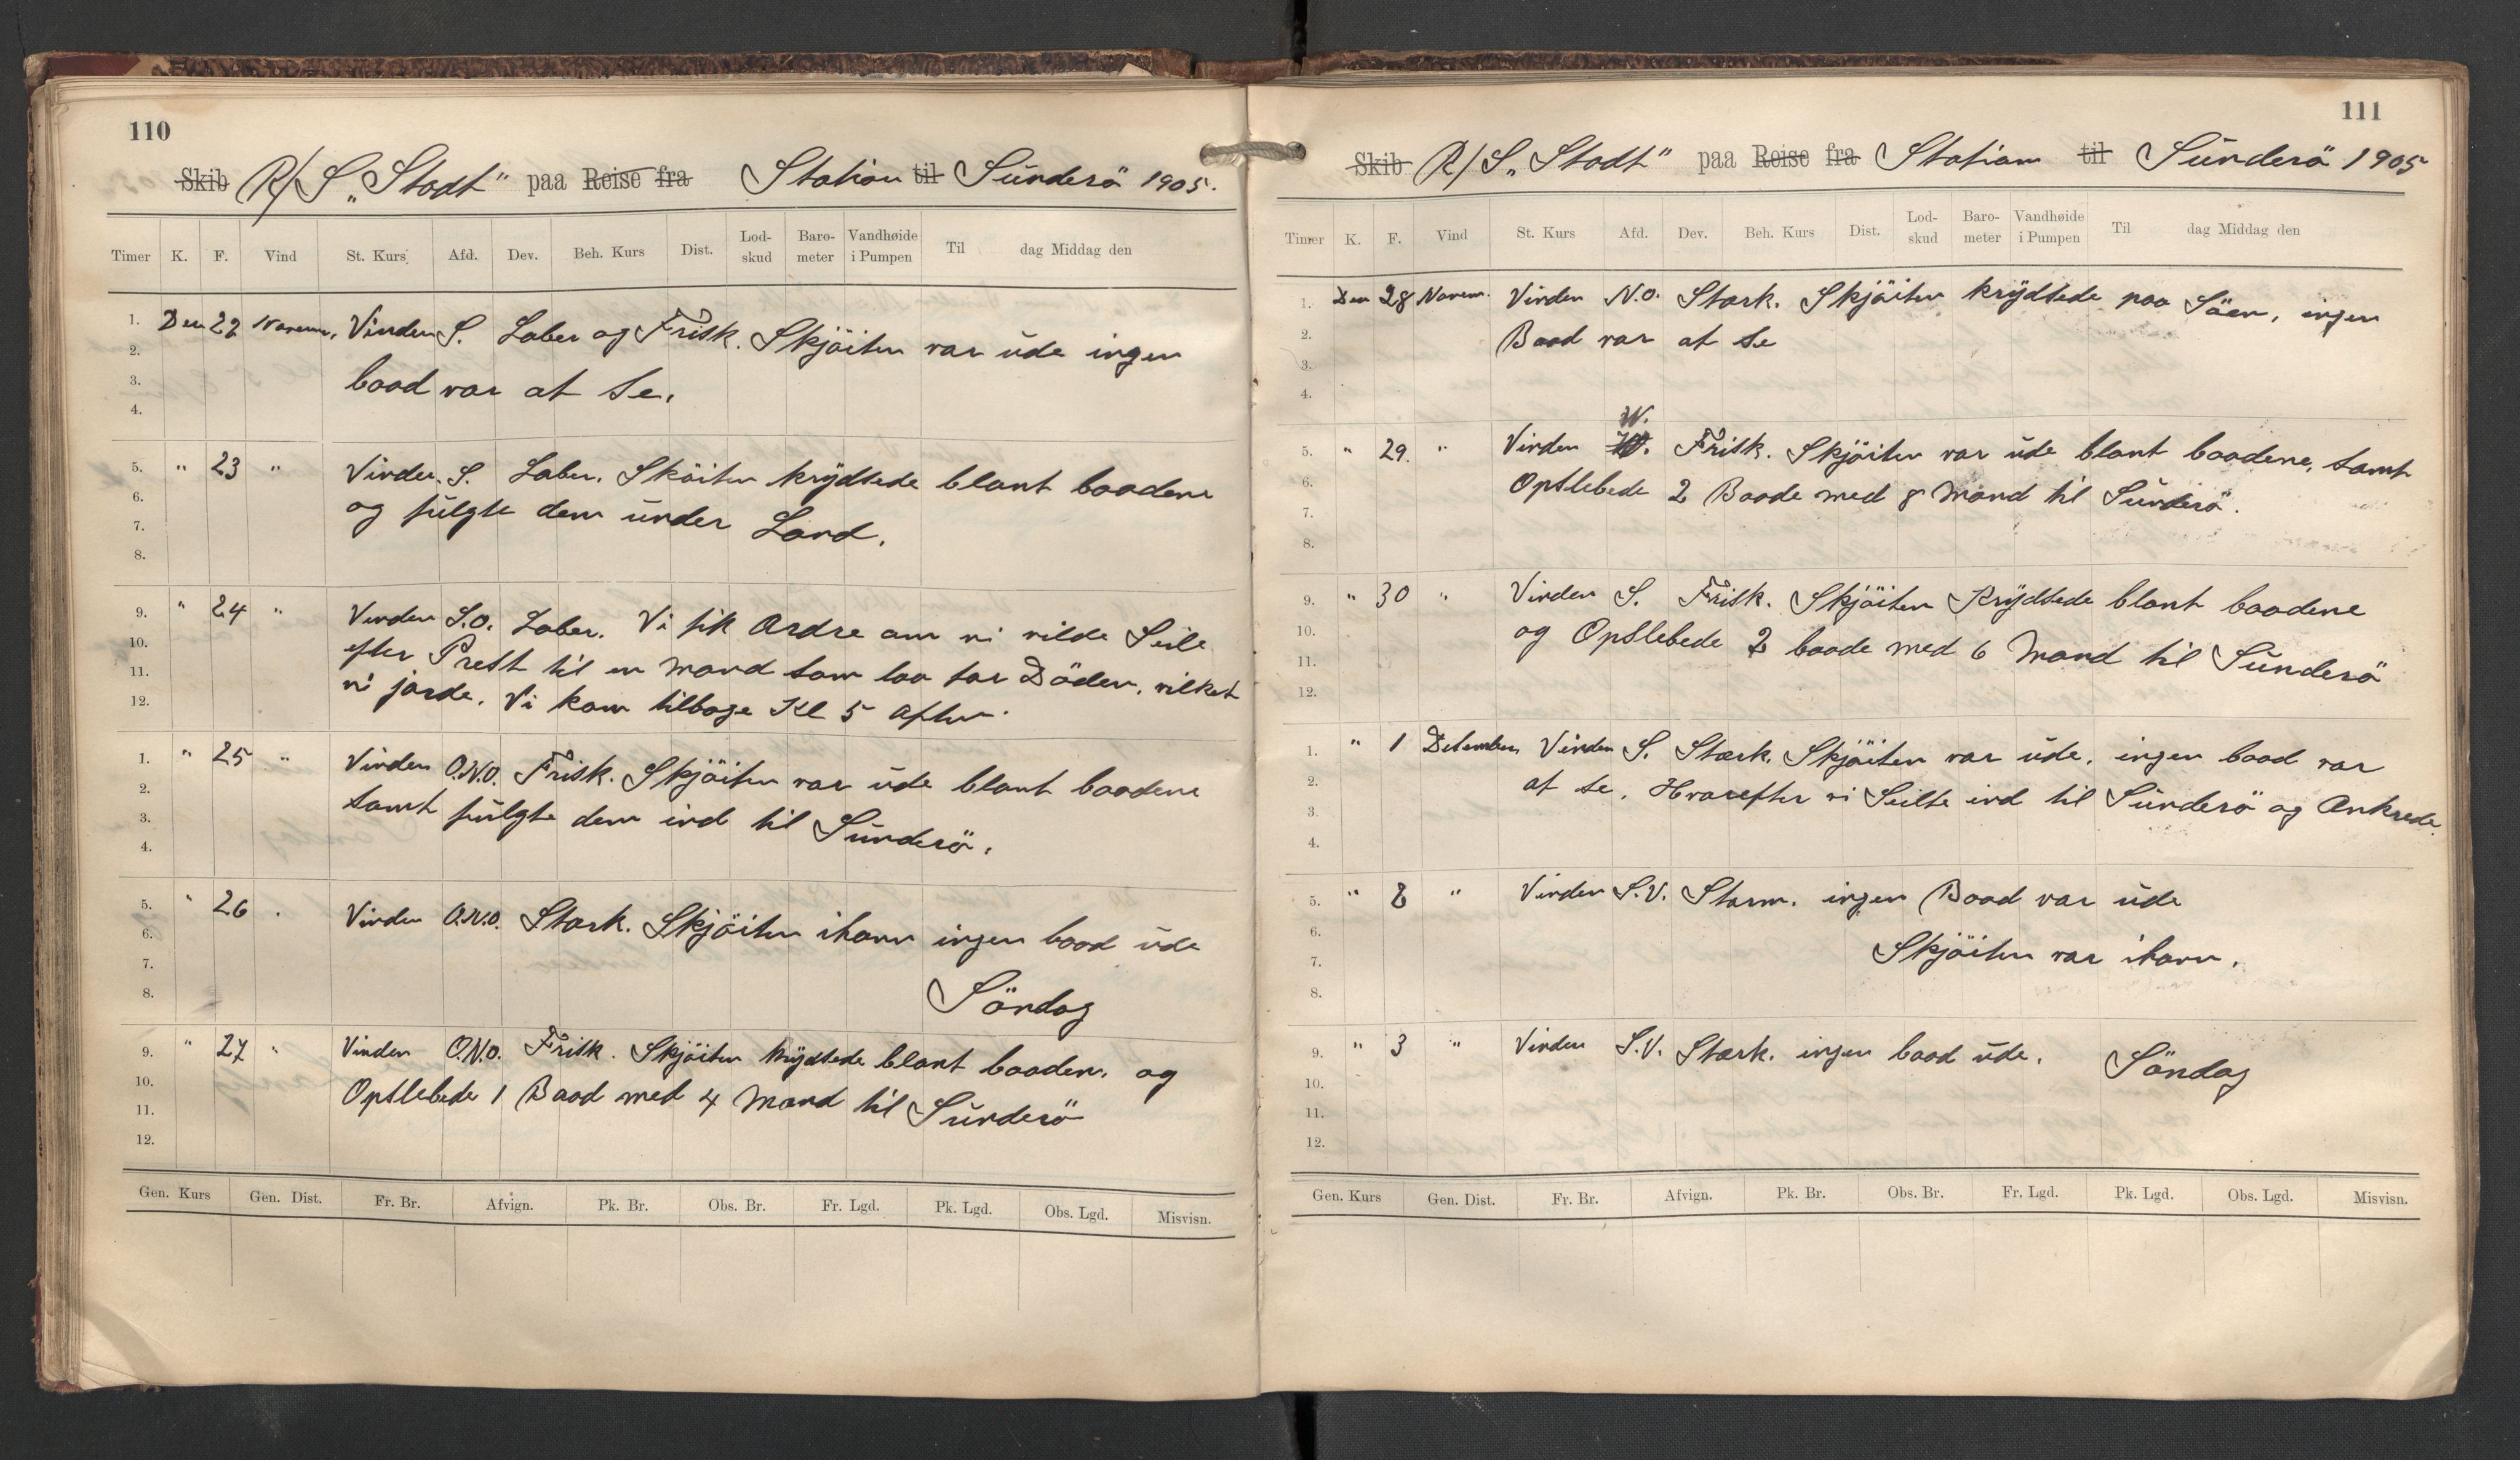 110
Skib R/S „Stadt" paa Reise fra Station til Sünderö 1905.
Timer K. F. Vind St. Kurs Afd. Dev. Beh. Kurs Dist. Lod-skud Baro-meter Vandhøide i Pumpen Til dag Middag den
1. Den 22 Novem. Vinden S. Laber og Frisk. Skjöiten var üde ingen
2.
3. baad var at Se.
4.
5. " 23 " Vinden. S. Laber. Sköiten krÿdsede blant baadene
6.
7. og fülgte dem ünder Land.
8.
9. " 24 " Vinden S.O. Laber. Vi fik Ordre om vi vilde Seile
10. efter Prest til en Mand som laa for Döden, vilket
11.
12. vi jorde. Vi kom tilbage Kl 5 Aften.
1. " 25 " Vinden O.N.O. Frisk. Skjöiten var üde blant baadene
2.
3. samt fülgte dem ind til Sünderö.
4.
5. " 26 . Vinden O.N.O. Stærk. Skjöiten ihavn ingen baad üde
6.
7.
8. Söndag
9. " 27 " Vinden O.N.O. Frisk. Skjöiten krÿdsede blant baaden. og
10. Opslebede 1 Baad med 4 Mand til Sünderö
11.
12.
Gen. Kurs Gen. Dist. Fr. Br. Afvign. Pk. Br. Obs. Br. Fr. Lgd. Pk. Lgd. Obs. Lgd. Misvisn.
111
Skib R/S „Stadt" paa Reise fra Station til Sünderö 1905
Timer K. F. Vind St. Kurs Afd. Dev. Beh. Kurs Dist. Lod-skud Baro-meter Vandhøide i Pumpen Til dag Middag den
1. Den 28 Novem. Vinden N.O. Stærk. Skjöiten krÿdsede paa Söen, ingen
2. Baad var at Se
3.
4.
W.
5. " 29. " Vinden Frisk. Skjöiten var üde blant baadene, samt
6. Opslebede 2 Baade med 8 Mand til Sünderö.
7.
8.
9. " 30 " Vinden S. Frisk. Skjöiten Krÿdsede blant baadene
10. og Opslebede 2 baade med 6 Mand til Sünderö
11.
12.
1. " 1 Desember Vinden S. Stærk. Skjöiten var üde. ingen baad var
2. at se. Hvorefter vi Seilte ind til Sünderö og Ankrede.
3.
4.
5. " 2 " Vinden S.V. Storm. ingen Baad var üde
6.
7. Skjöiten var ihavn.
8.
9. " 3 " Vinden S.V. Stærk. ingen baad üde. Söndag
10.
11.
12.
Gen. Kurs Gen. Dist. Fr. Br. Afvign. Pk. Br. Obs. Br. Fr. Lgd. Pk. Lgd. Obs. Lgd. Misvisn.